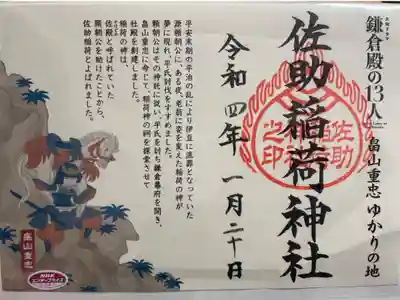 鎌倉殿の13人
畠山重忠 ゆかりの地
佐助稲荷神社
佐助
稲荷
神社
之印
令和四年 一月二十日
平安末期の平治の乱により伊豆に流罪となっていた
源頼朝公に、ある夜、老翁に姿を変えた稲荷の神が
夢に現れ、平氏討伐をすすめました。
頼朝公はその神託に従い、平氏を討ち鎌倉幕府を開き、
畠山重忠に命じて、稲荷神の祠を探索させて
社殿を創建しました。
稲荷の神は、
佐殿と呼ばれていた
頼朝公を助けたことから、
佐助稲荷とよばれました。
畠山重忠
NHK
エンタープライズ